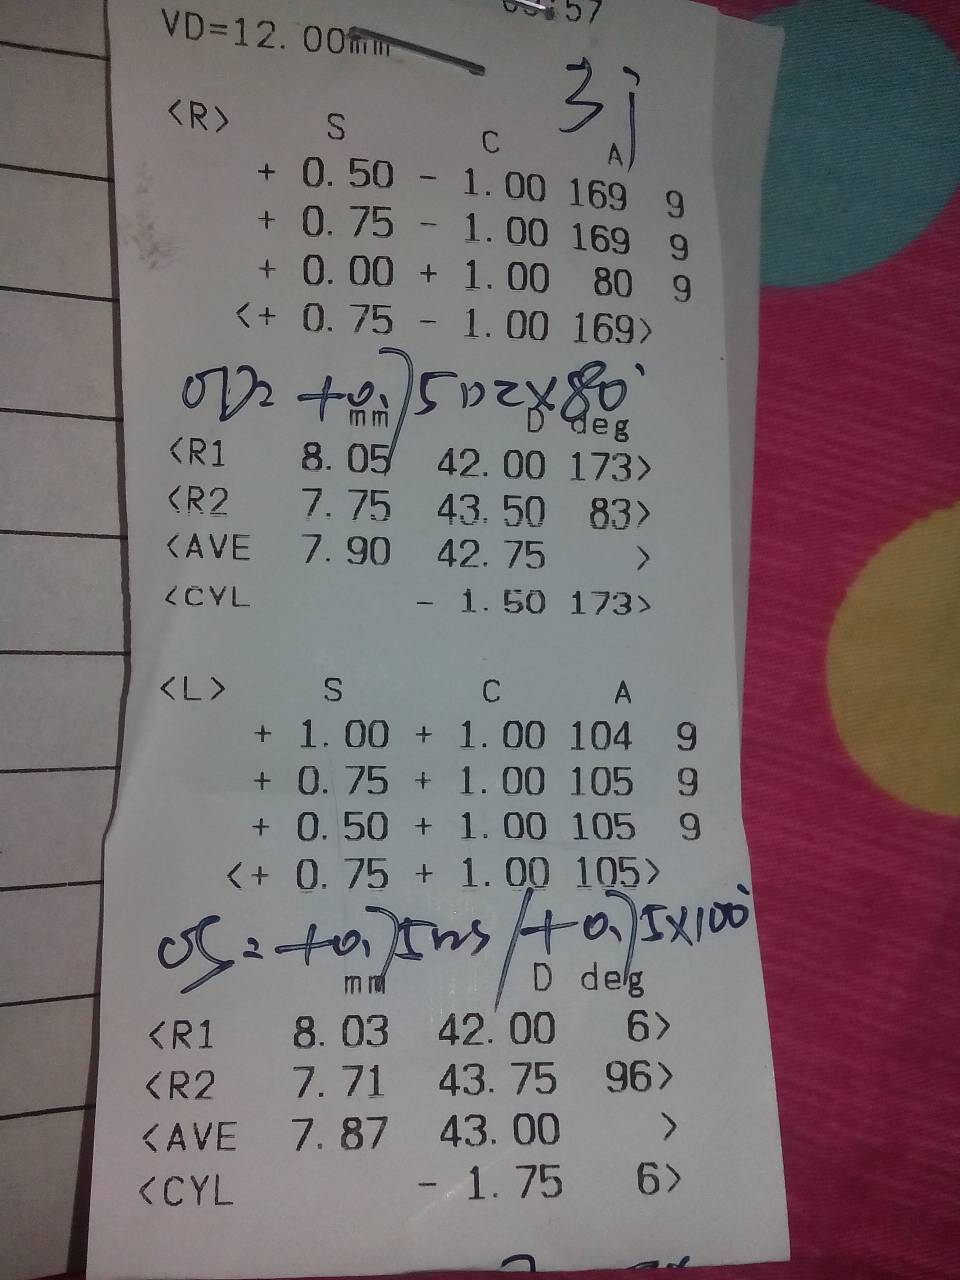 :57
VD=12.00mm
3j
<R> S C A
+ 0.50 - 1.00 169 9
+ 0.75 - 1.00 169 9
+ 0.00 + 1.00 80 9
<+ 0.75 - 1.00 169>
+0.75 DC x 80°
mm D deg
<R1 8.05 42.00 173>
<R2 7.75 43.50 83>
<AVE 7.90 42.75 >
<CYL - 1.50 173>
<L> S C A
+ 1.00 + 1.00 104 9
+ 0.75 + 1.00 105 9
+ 0.50 + 1.00 105 9
<+ 0.75 + 1.00 105>
OS = +0.75 DS / +0.75 x 100°
mm D deg
<R1 8.03 42.00 6>
<R2 7.71 43.75 96>
<AVE 7.87 43.00 >
<CYL - 1.75 6>